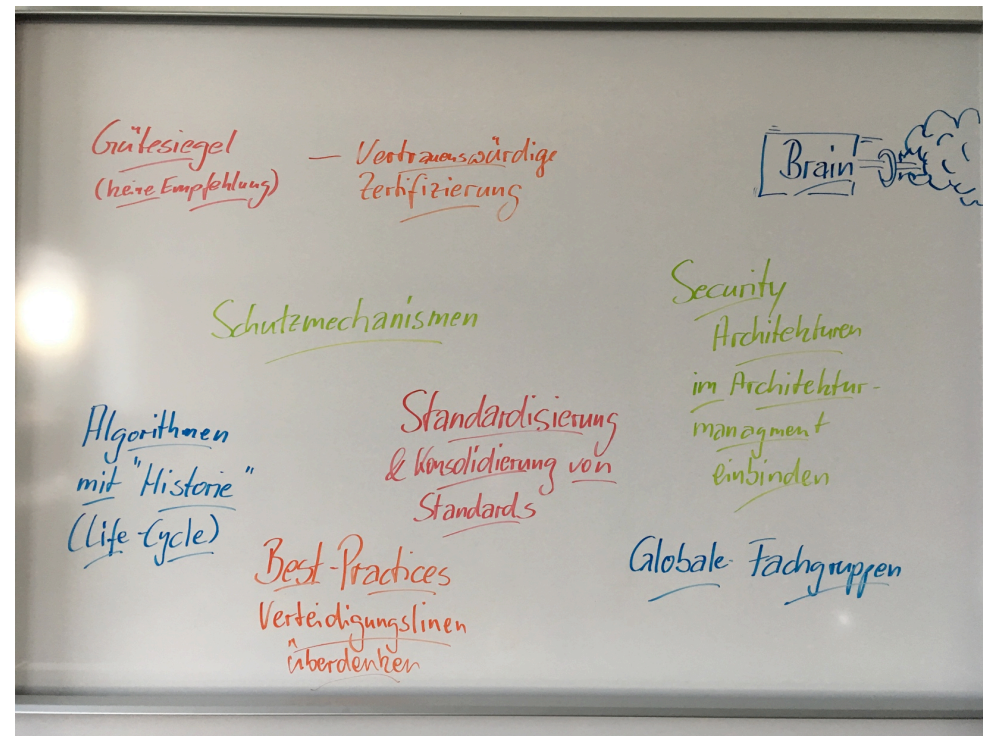 Gütesiegel
(keine Empfehlung)
— Vertrauenswürdige
Zertifizierung
Brain
Schutzmechanismen
Security
Architekturen
im Architektur-
managment
einbinden
Algorithmen
mit "Historie"
(Life-Cycle)
Standardisierung
& Konsolidierung von
Standards
Best-Practices
Verteidigungslinen
überdenken
Globale Fachgruppen